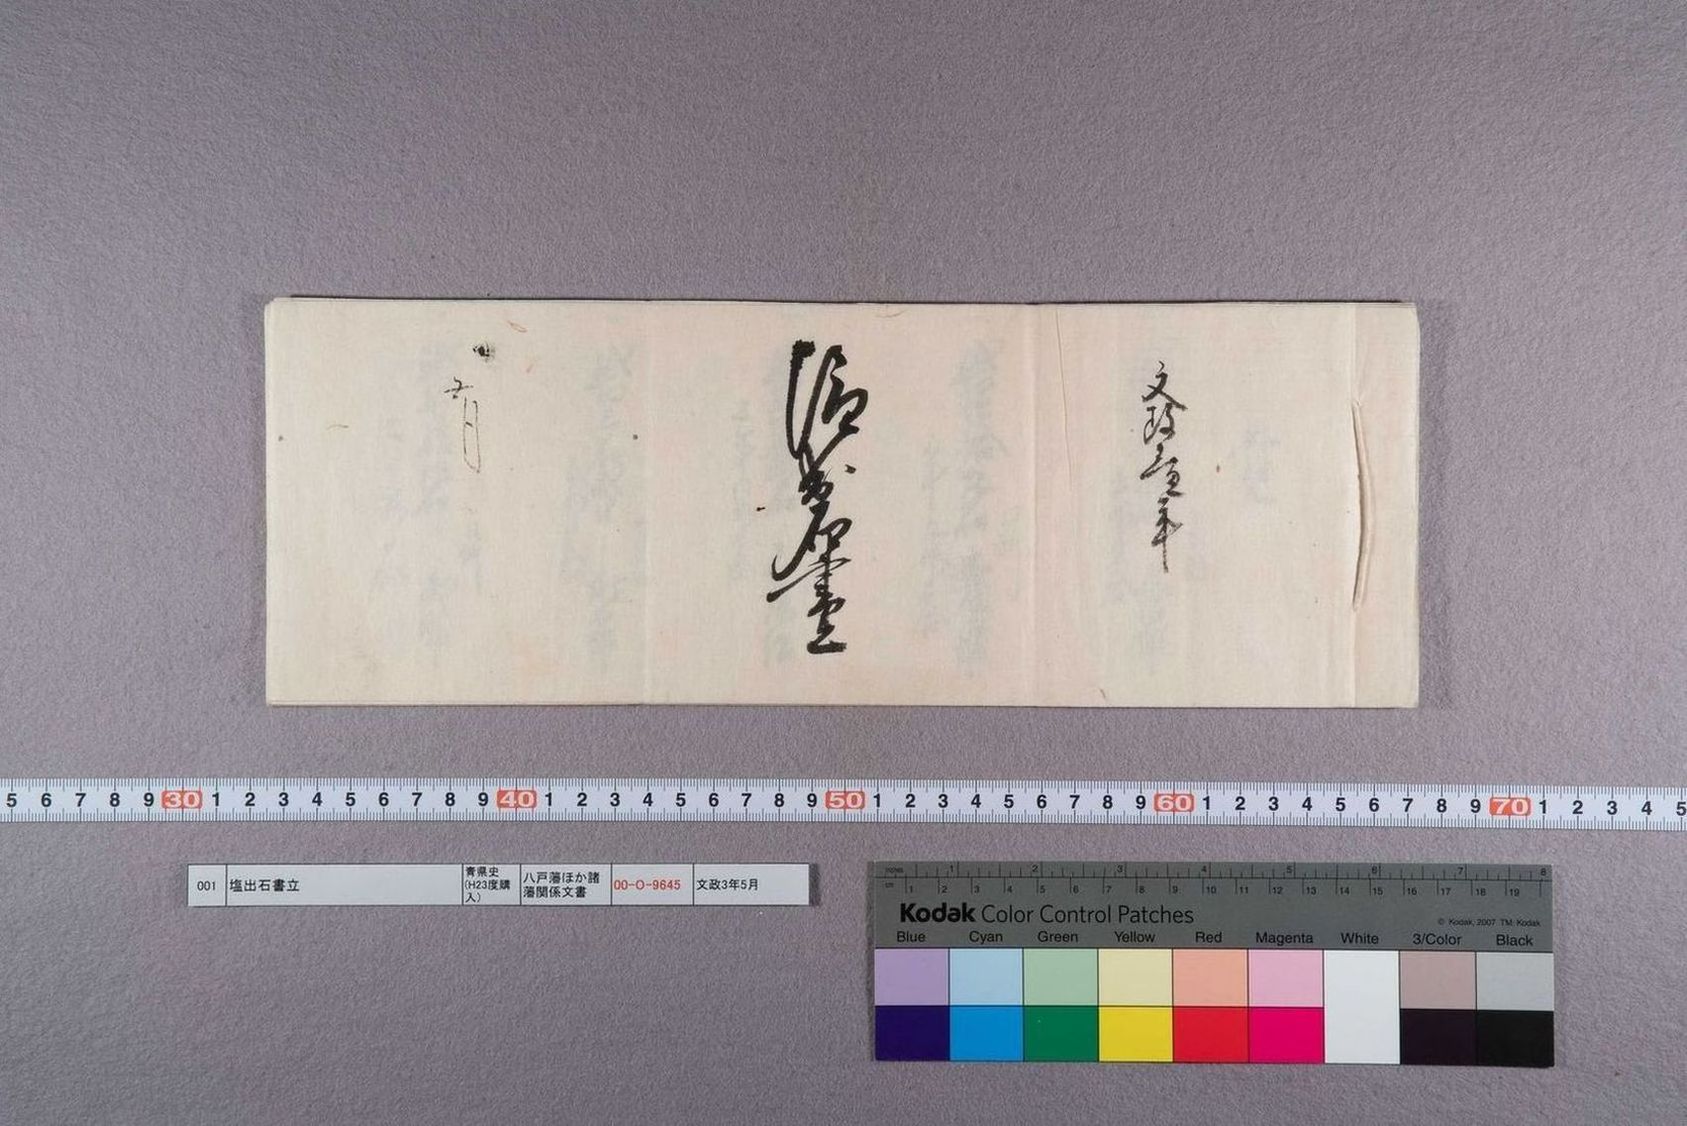 文政三年
塩出石書立
五月
5 6 7 8 9 30 1 2 3 4 5 6 7 8 9 40 1 2 3 4 5 6 7 8 9 50 1 2 3 4 5 6 7 8 9 60 1 2 3 4 5 6 7 8 9 70 1 2 3 4 5
001 塩出石書立 青県史(H23度購入) 八戸藩ほか諸藩関係文書 00-O-9645 文政3年5月
inches 1 2 3 4 5 6 7 8
cm 1 2 3 4 5 6 7 8 9 10 11 12 13 14 15 16 17 18 19
Kodak Color Control Patches
© Kodak, 2007 TM: Kodak
Blue Cyan Green Yellow Red Magenta White 3/Color Black